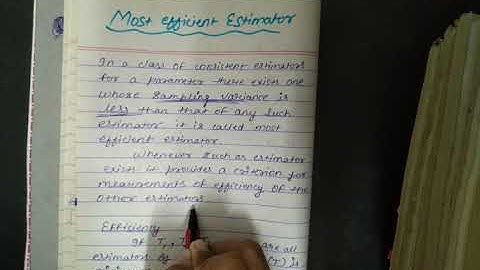 Most efficient Estimator
In a class of consistent estimators
for a parameter there exists one
whose sampling variance is
less than that of any such
estimator it is called most
efficient estimator.
Whenever such as estimator
exists it provides a criterion for
measurements of efficiency of the
other estimators
Efficiency
If T₁, are all
estimators of (T) is